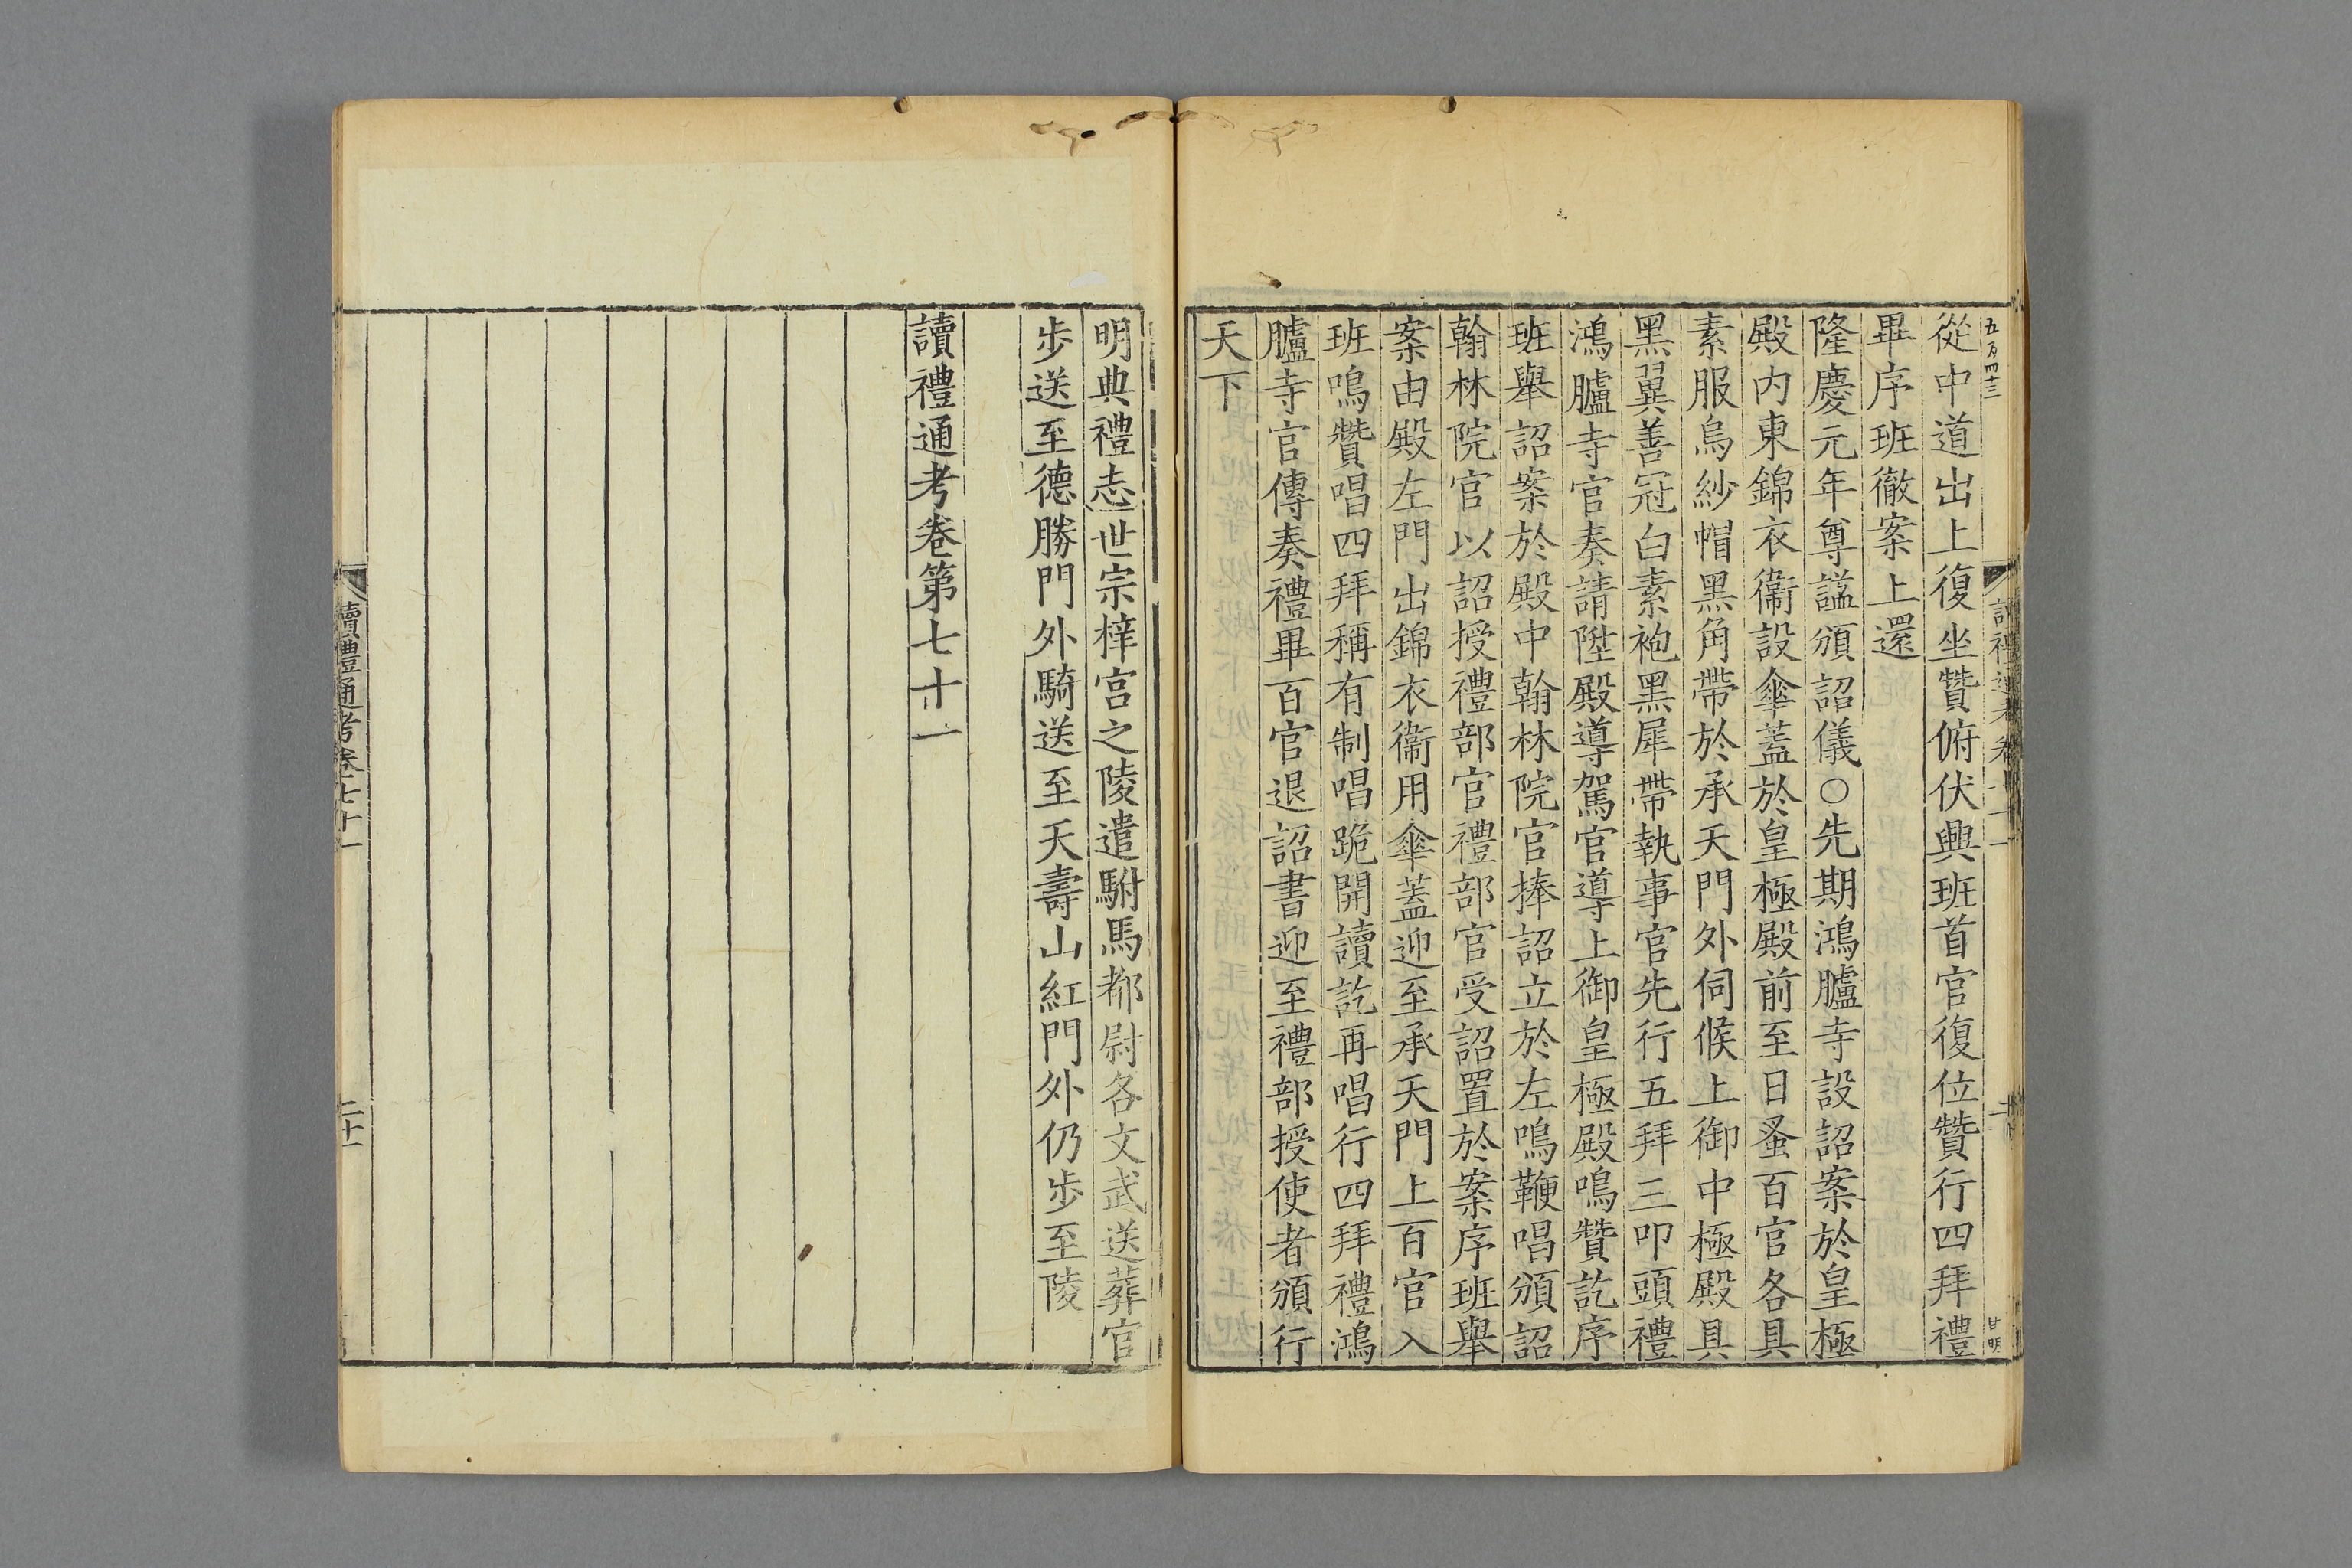 五百四十三
從中道出上復坐贊俯伏興班首官復位贊行四拜禮
畢序班徹案上還
隆慶元年尊謚頒詔儀○先期鴻臚寺設詔案於皇極
殿内東錦衣衞設傘蓋於皇極殿前至日蚤百官各具
素服烏紗帽黑角帶於承天門外伺候上御中極殿具
黑翼善冠白素袍黑犀帶執事官先行五拜三叩頭禮
鴻臚寺官奏請陞殿導駕官導上御皇極殿鳴贊訖序
班舉詔案於殿中翰林院官捧詔立於左鳴鞭唱頒詔
翰林院官以詔授禮部官禮部官受詔置於案序班舉
案由殿左門出錦衣衞用傘蓋迎至承天門上百官入
班鳴贊唱四拜稱有制唱跪開讀訖再唱行四拜禮鴻
臚寺官傳奏禮畢百官退詔書迎至禮部授使者頒行
天下
明典禮志世宗梓宫之陵遣駙馬都尉各文武送葬官
步送至德勝門外騎送至天壽山紅門外仍步至陵
讀禮通考卷第七十一
讀禮通考卷七十一
二十一